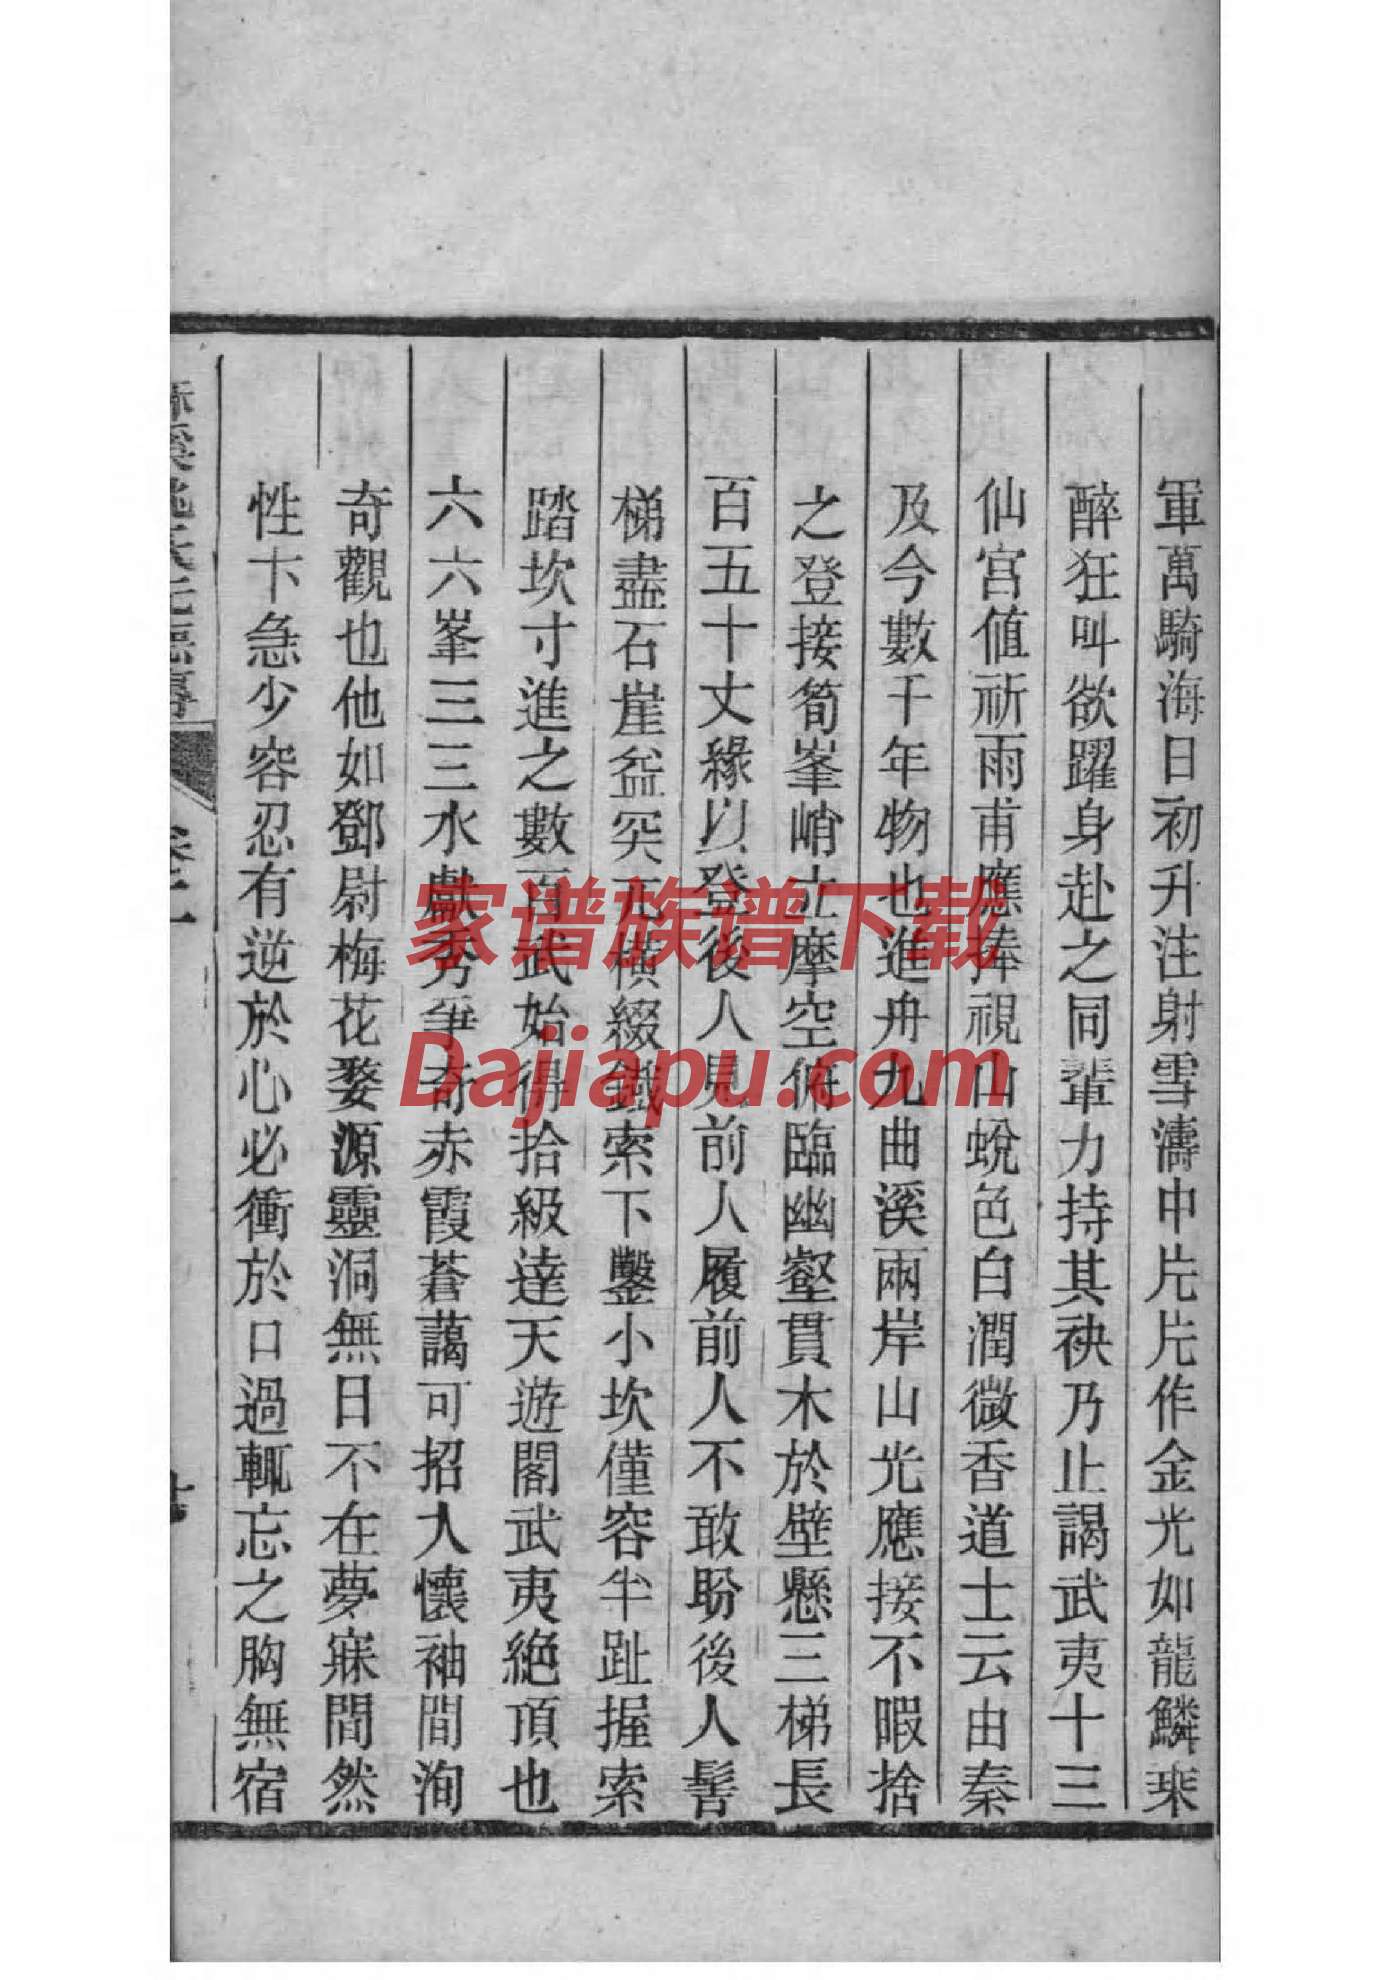 軍萬騎海日初升注射雪濤中片片作金光如龍鱗乘
醉狂叫欲躍身赴之同輩力持其袂乃止謁武夷十三
仙宫值祈雨甫應捧視山蛻色白潤微香道士云由秦
及今數千年物也進舟九曲溪兩岸山光應接不暇捨
之登接筍峯峭立摩空俯臨幽壑貫木於壁懸三梯長
百五十丈緣以登後人見前人履前人不敢盼後人髻
梯盡石崖益突兀橫綴鐵索下鑿小坎僅容半趾握索
踏坎寸進之數百武始得拾級達天遊閣武夷絕頂也
六六峯三三水獻秀爭奇赤霞蒼藹可招人懷袖間洵
奇觀也他如鄧尉梅花婺源靈洞無日不在夢寐間然
性卞急少容忍有逆於心必衝於口過輒忘之胸無宿
家谱族谱下载
Dajiapu.com